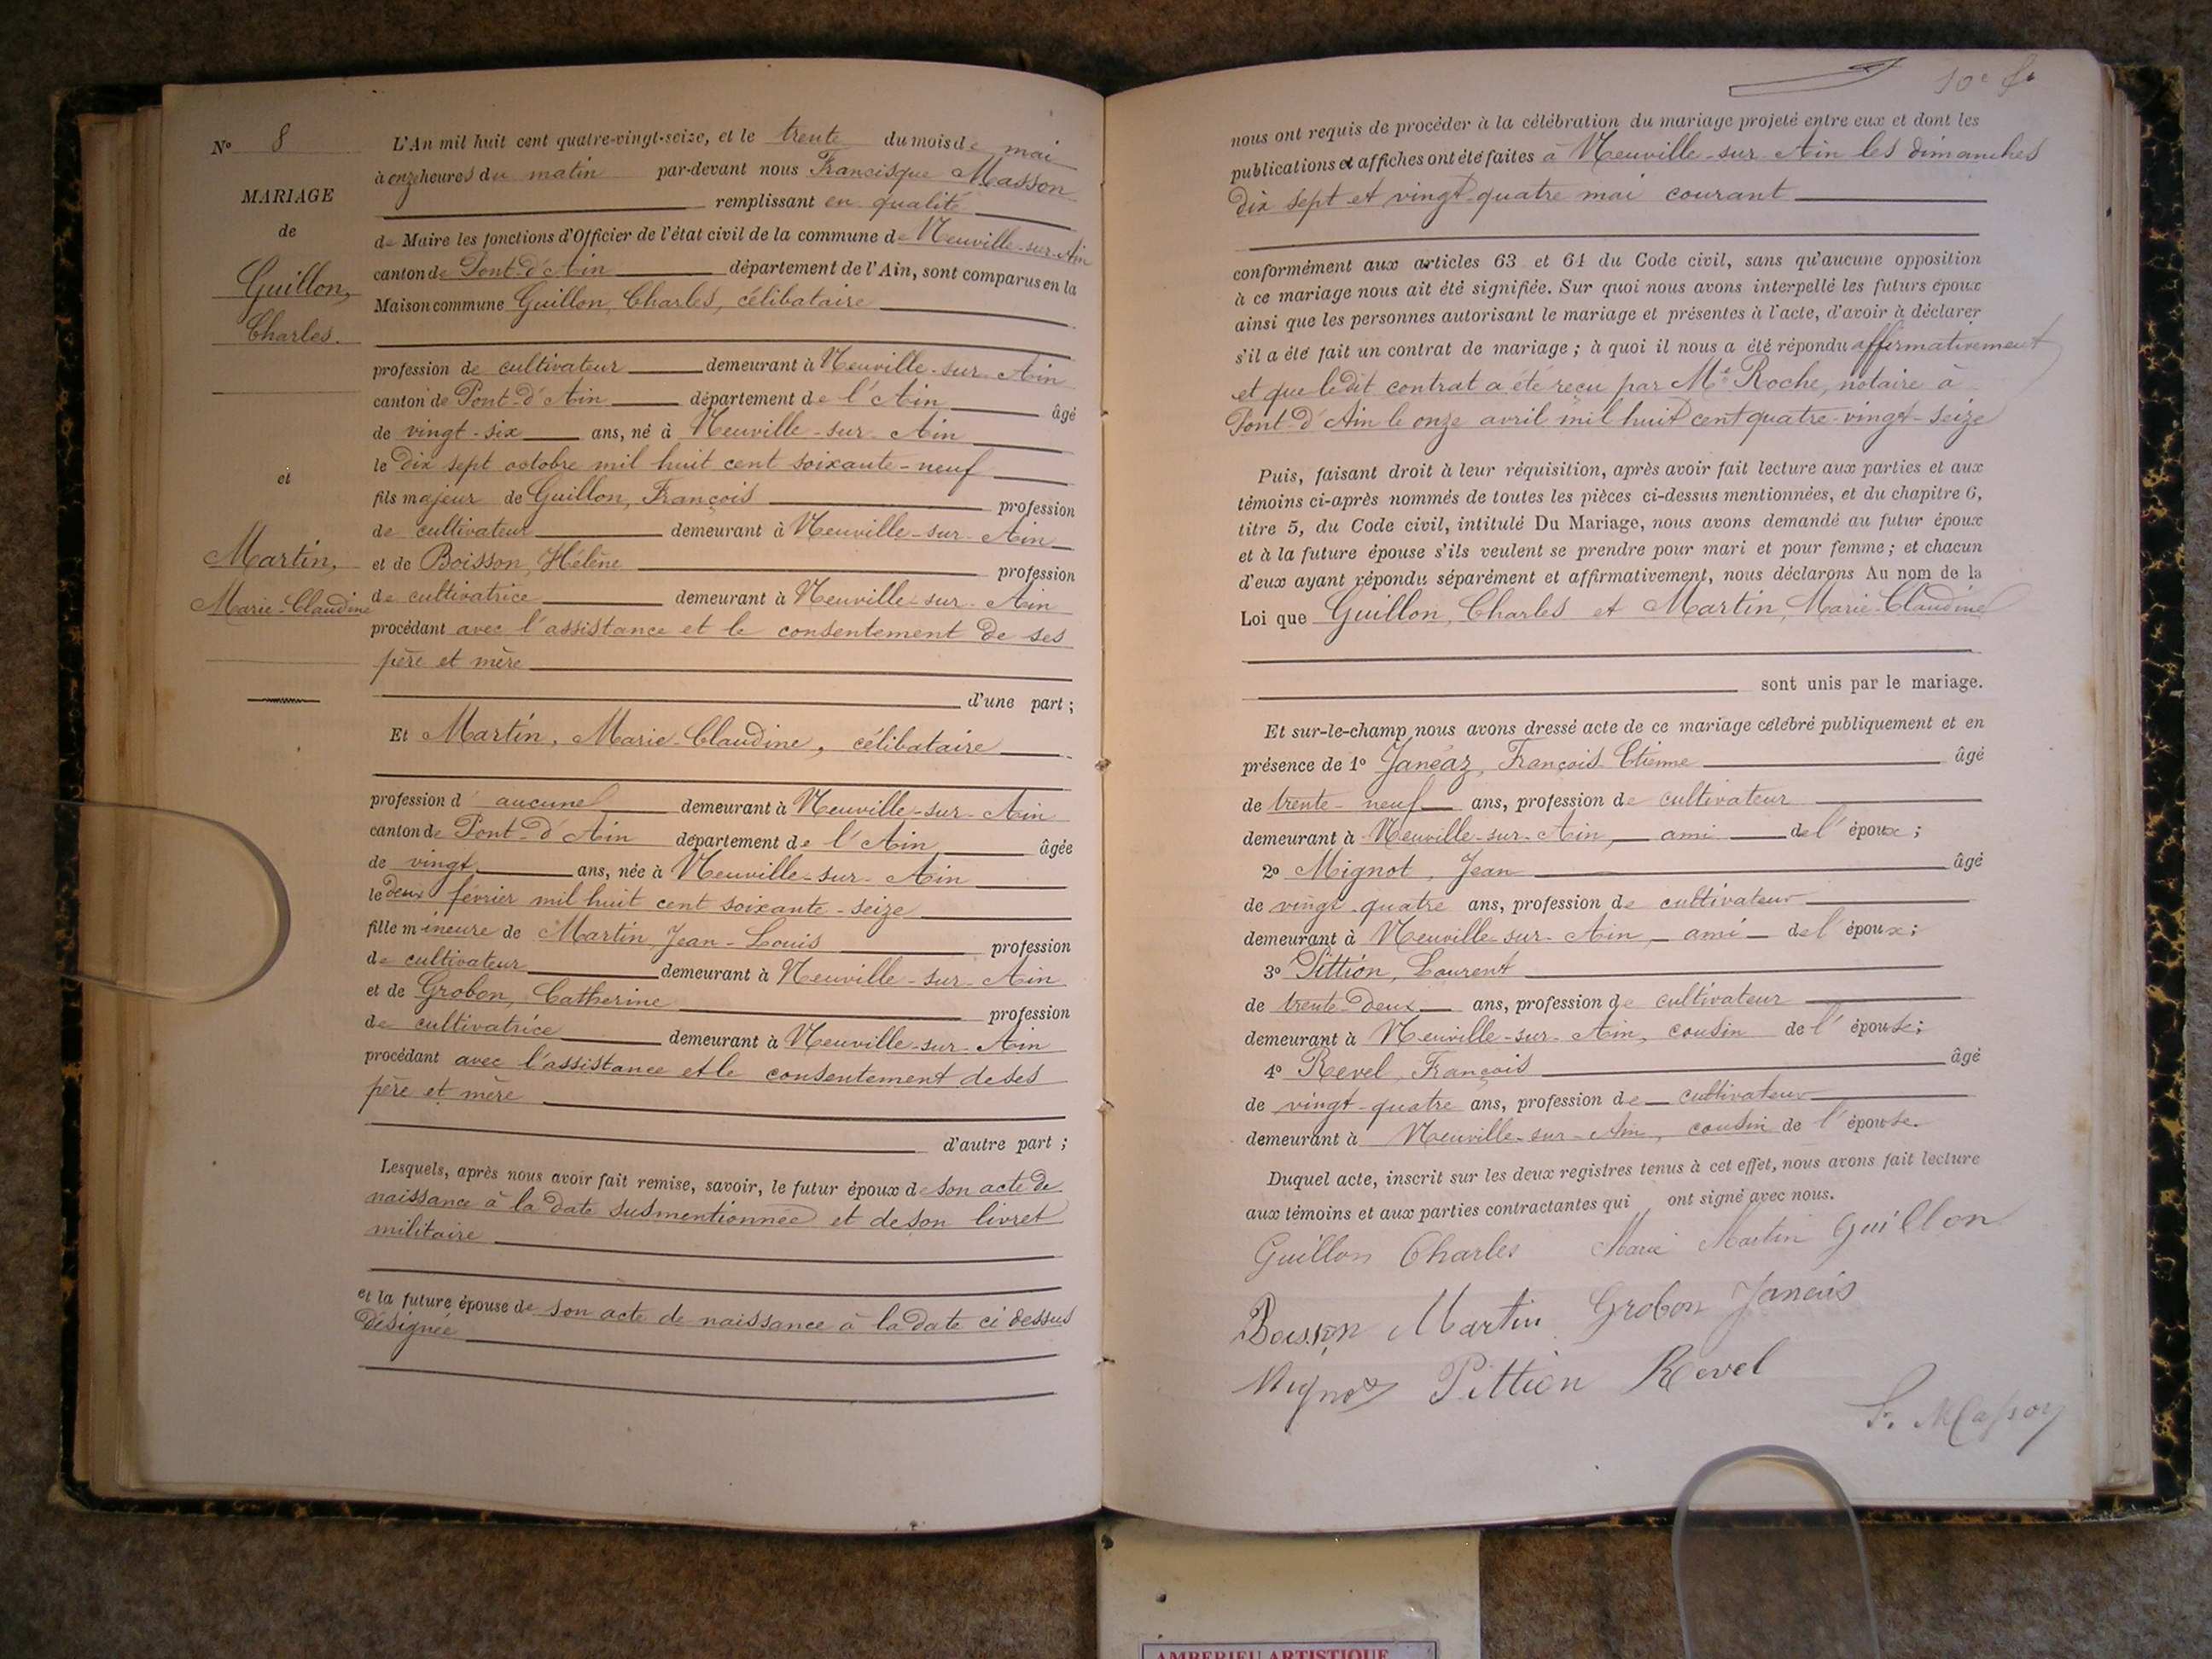 N° 8
MARIAGE
de
Guillon,
Charles.
et
Martin,
Marie-Claudine
L'An mil huit cent quatre-vingt-seize, et le trente du mois de mai
à onze heures du matin par-devant nous Francisque Masson
remplissant en qualité
de Maire les fonctions d'Officier de l'état civil de la commune de Neuville-sur-Ain
canton de Pont-d'Ain département de l'Ain, sont comparus en la
Maison commune Guillon, Charles, célibataire
profession de cultivateur demeurant à Neuville-sur-Ain
canton de Pont-d'Ain département de l'Ain âgé
de vingt-six ans, né à Neuville-sur-Ain
le dix sept octobre mil huit cent soixante-neuf
fils majeur de Guillon, François profession
de cultivateur demeurant à Neuville-sur-Ain
et de Boisson, Hélène profession
de cultivatrice demeurant à Neuville-sur-Ain
procédant avec l'assistance et le consentement de ses
père et mère
d'une part ;
Et Martin, Marie-Claudine, célibataire
profession d'aucune demeurant à Neuville-sur-Ain
canton de Pont-d'Ain département de l'Ain âgée
de vingt ans, née à Neuville-sur-Ain
le deux février mil huit cent soixante-seize
fille mineure de Martin, Jean-Louis profession
de cultivateur demeurant à Neuville-sur-Ain
et de Grobon, Catherine profession
de cultivatrice demeurant à Neuville-sur-Ain
procédant avec l'assistance et le consentement de ses
père et mère
d'autre part ;
Lesquels, après nous avoir fait remise, savoir, le futur époux de son acte de
naissance à la date susmentionnée et de son livret
militaire
et la future épouse de son acte de naissance à la date ci dessus
désignée
10e
nous ont requis de procéder à la célébration du mariage projeté entre eux et dont les
publications et affiches ont été faites à Neuville-sur-Ain les dimanches
dix sept et vingt-quatre mai courant
conformément aux articles 63 et 64 du Code civil, sans qu'aucune opposition
à ce mariage nous ait été signifiée. Sur quoi nous avons interpellé les futurs époux
ainsi que les personnes autorisant le mariage et présentes à l'acte, d'avoir à déclarer
s'il a été fait un contrat de mariage ; à quoi il nous a été répondu affirmativement
et que le dit contrat a été reçu par Me Roche, notaire à
Pont-d'Ain le onze avril mil huit cent quatre-vingt-seize
Puis, faisant droit à leur réquisition, après avoir fait lecture aux parties et aux
témoins ci-après nommés de toutes les pièces ci-dessus mentionnées, et du chapitre 6,
titre 5, du Code civil, intitulé Du Mariage, nous avons demandé au futur époux
et à la future épouse s'ils veulent se prendre pour mari et pour femme ; et chacun
d'eux ayant répondu séparément et affirmativement, nous déclarons Au nom de la
Loi que Guillon, Charles et Martin, Marie-Claudine
sont unis par le mariage.
Et sur-le-champ nous avons dressé acte de ce mariage célébré publiquement et en
présence de 1° Janéaz, François Etienne âgé
de trente-neuf ans, profession de cultivateur
demeurant à Neuville-sur-Ain, ami de l'époux ;
2° Mignot, Jean âgé
de vingt-quatre ans, profession de cultivateur
demeurant à Neuville-sur-Ain, ami de l'époux ;
3° Pittion, Laurent
de trente-deux ans, profession de cultivateur
demeurant à Neuville-sur-Ain, cousin de l'épouse ;
4° Revel, François âgé
de vingt-quatre ans, profession de cultivateur
demeurant à Neuville-sur-Ain, cousin de l'épouse.
Duquel acte, inscrit sur les deux registres tenus à cet effet, nous avons fait lecture
aux témoins et aux parties contractantes qui ont signé avec nous.
Guillon Charles Marie Martin Guillon
Boisson Martin Grobon Janeais
Mignot Pittion Revel
F. Masson
AMBERIEU ARTISTIQUE